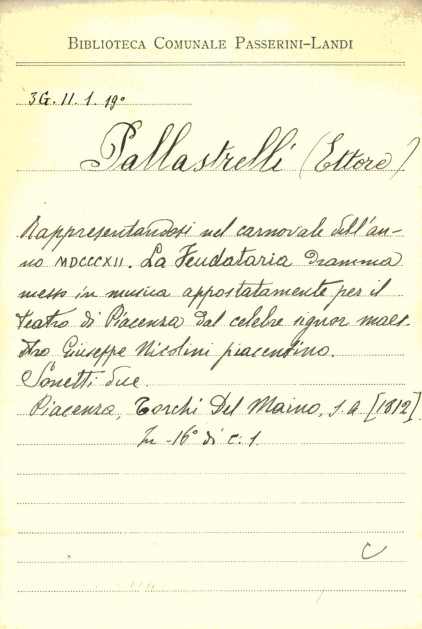 BIBLIOTECA COMUNALE PASSERINI-LANDI
3G. II. 1. 19°
Pallastrelli (Ettore)
Rappresentandosi nel carnovale dell'an-
no MDCCCXII. La Feudataria Dramma
messo in musica appostatamente per il
teatro di Piacenza dal celebre signor maes-
tro Giuseppe Nicolini piacentino.
Sonetti due.
Piacenza, Torchi Del Maino, s. a. [1812]
In -16° di c. 1.
C